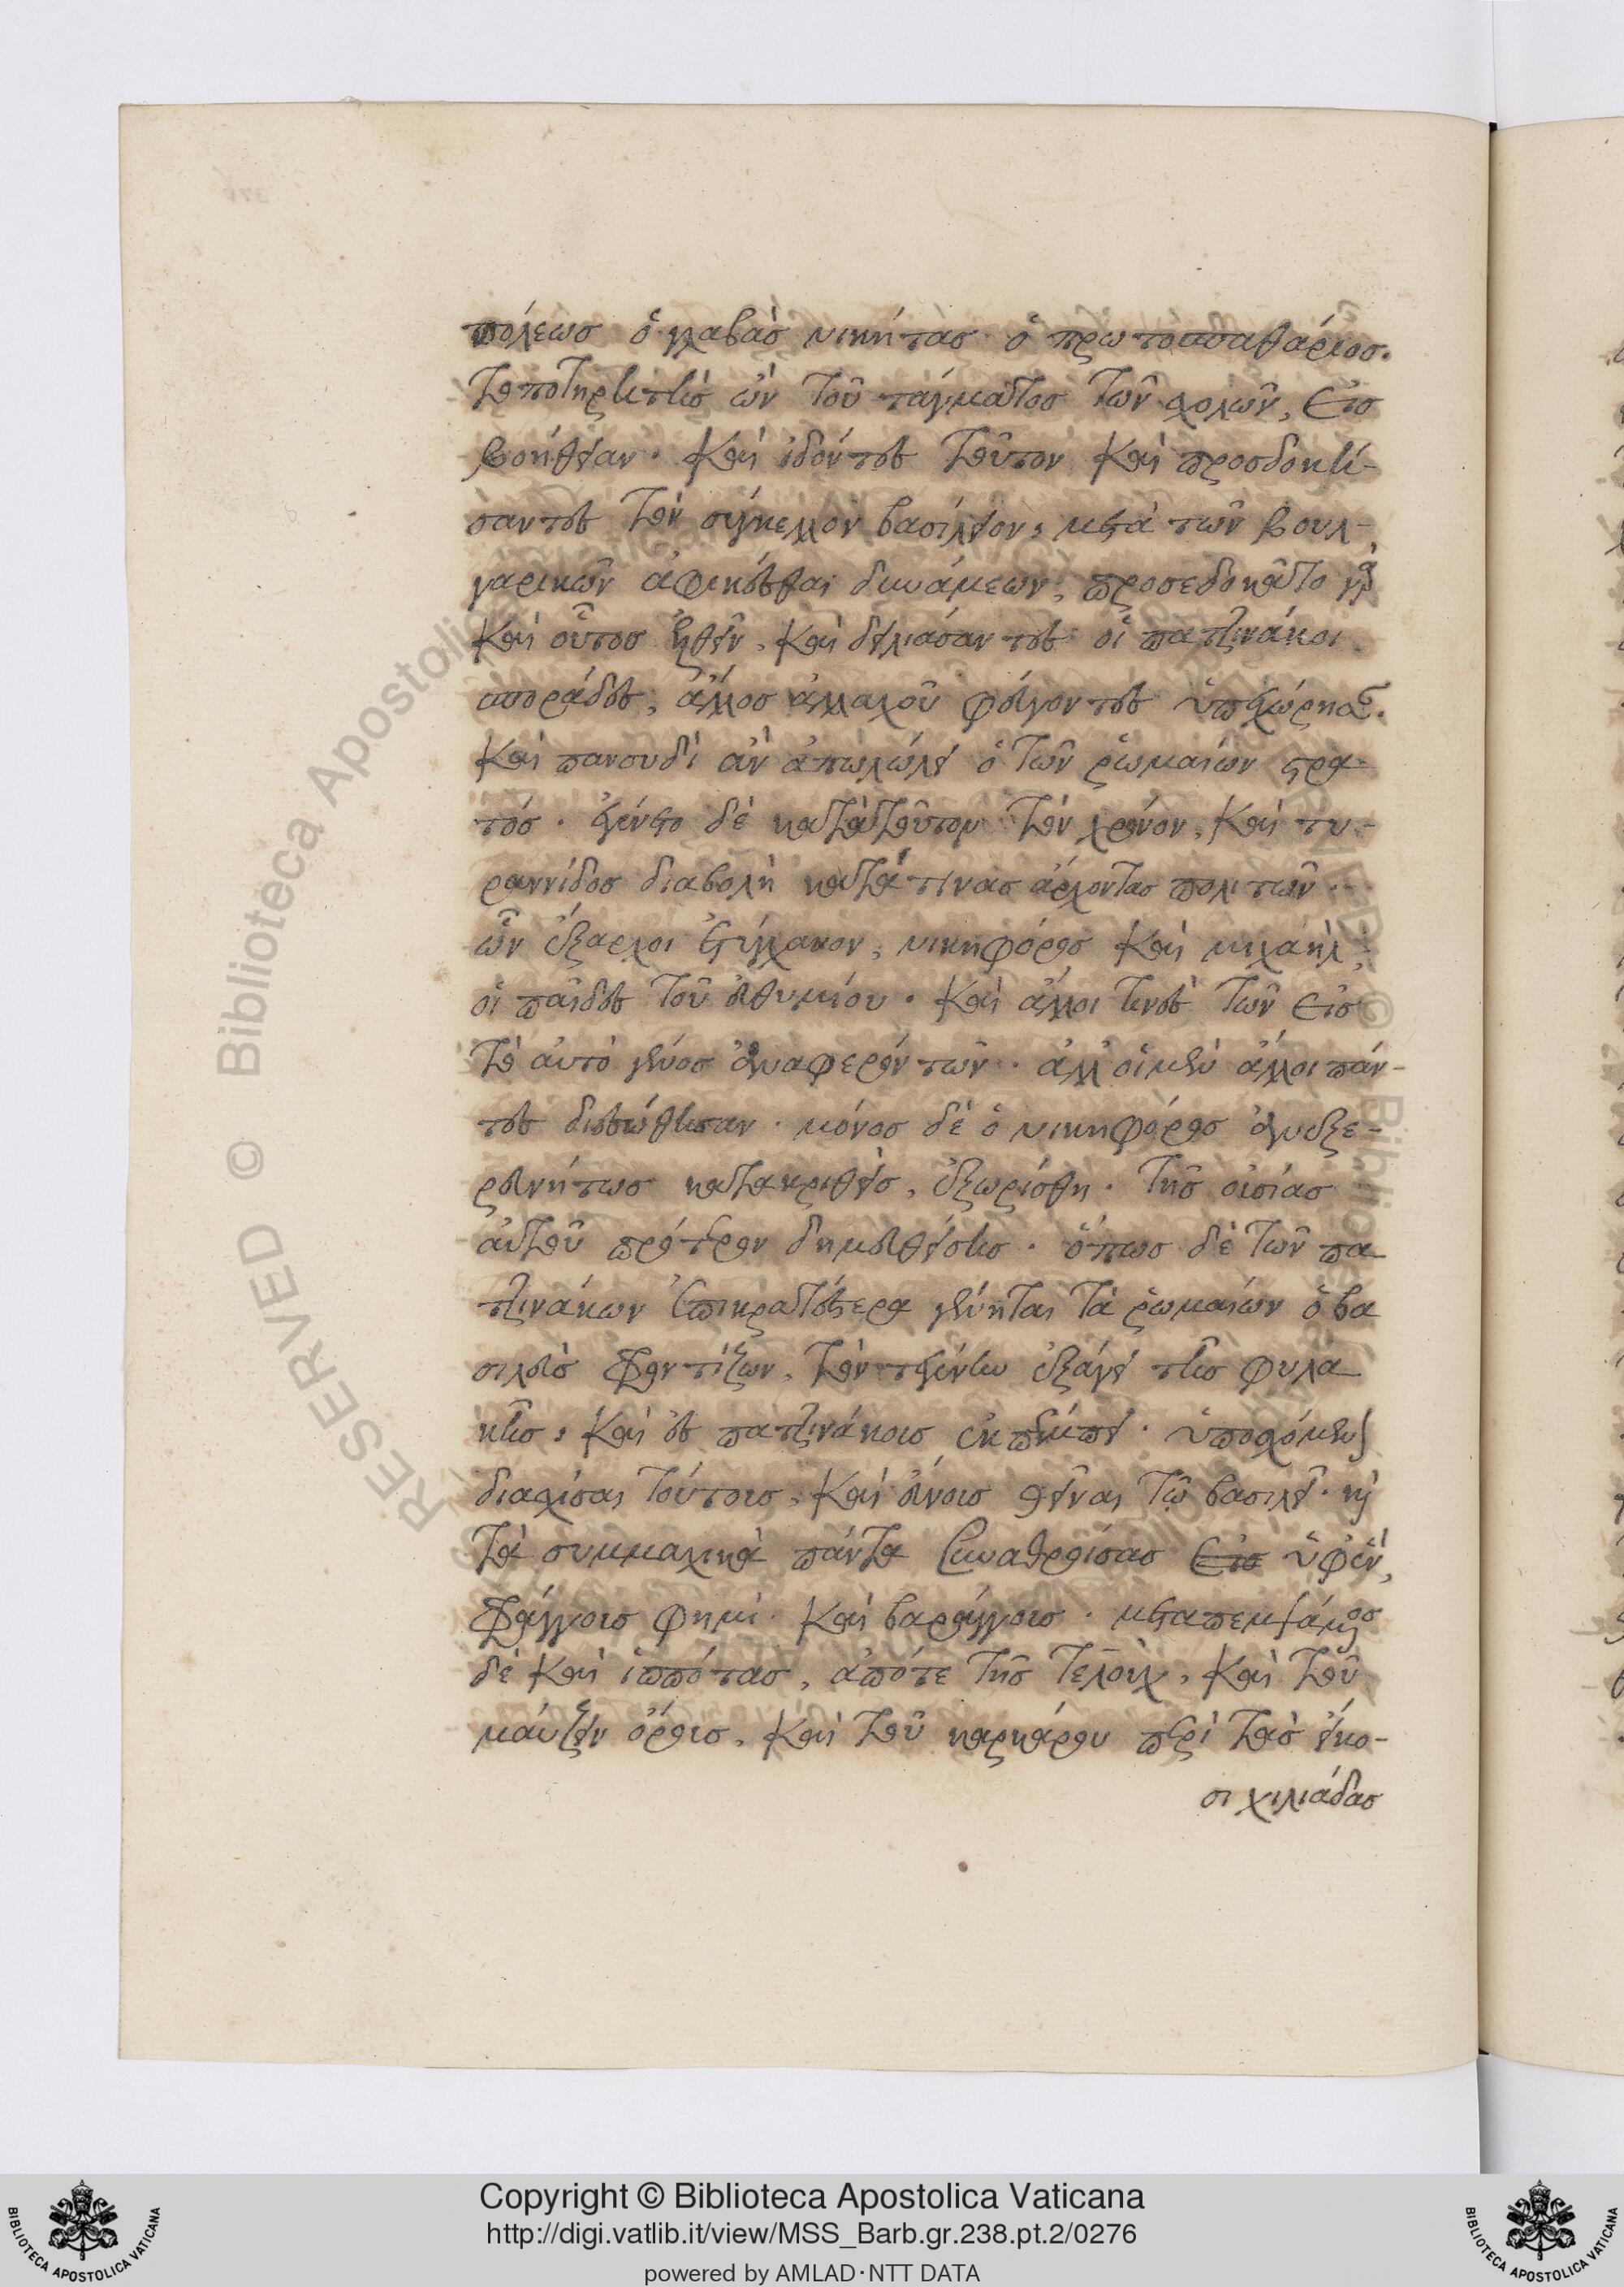 πόλεως ὁ γλαβὰς νικήτας ὁ πρωτοσπαθάριος.
τοποτηρητὴς ὢν τοῦ τάγματος τῶν σχολῶν, εἰς
βοήθειαν. καὶ ἰδόντες τοῦτον καὶ προσδοκή-
σαντες τὸν σύγκελλον βασίλειον, μετὰ τῶν βουλ-
γαρικῶν ἀφικέσθαι δυνάμεων, προσεδοκᾶτο γὰρ
καὶ οὗτος ἐλθεῖν, καὶ δειλιάσαντες οἱ πατζινάκοι
σποράδες, ἄλλος ἀλλαχοῦ φεύγοντες ὑπεχώρησαν.
καὶ πανσυδὶ ἂν ἀπωλώλει ὁ τῶν ῥωμαίων στρα
τός. ἐγένετο δὲ κατὰ τοῦτον τὸν χρόνον, καὶ τυ-
ραννίδος διαβολὴ κατά τινας ἄρχοντας πολιτῶν
ὧν ἔξαρχοι ἐτύγχανον, νικηφόρος καὶ μιχαὴλ,
οἱ παῖδες τοῦ εὐθυμίου. καὶ ἄλλοι τινὲς τῶν εἰς
τὸ αὐτὸ γένος ἀναφερόντων. ἀλλ οἱ μὲν ἄλλοι πάν-
τες διεσώθησαν. μόνος δὲ ὁ νικηφόρος ἀνεξε-
ρευνήτως κατακριθεὶς, ἐξωρίσθη. τῆς οὐσίας
αὐτοῦ πρότερον δημευθείσης. ὅπως δὲ τῶν πα
τζινάκων ἐπικρατέστερα γένηται τὰ ῥωμαίων ὁ βα
σιλεὺς φροντίζων, τὸν τεγένην ἐξάγει τῆς φυλα
κῆς, καὶ ἐς πατζινάκοις ἐκπέμπει. ὑποσχόμενον
διασχίσαι τούτοις, καὶ εὔνοις θεῖναι τῷ βασιλεῖ. καὶ
τὰ συμμαχικὰ πάντα συναθροίσας εἰς ὑφὲν,
φράγγοις φημὶ. καὶ βαράγγοις. μεταπεμψάμενος
δὲ καὶ ἱππότας, ἀπότε τῆς τελοὺχ, καὶ τοῦ
μαύρου ὄρους, καὶ τοῦ καρκάρου περὶ τὰς εἴκο-
σι χιλιάδας
Copyright © Biblioteca Apostolica Vaticana
http://digi.vatlib.it/view/MSS_Barb.gr.238.pt.2/0276
powered by AMLAD·NTT DATA
BIBLIOTECA APOSTOLICA VATICANA
BIBLIOTECA APOSTOLICA VATICANA
RESERVED © Biblioteca Apostolica